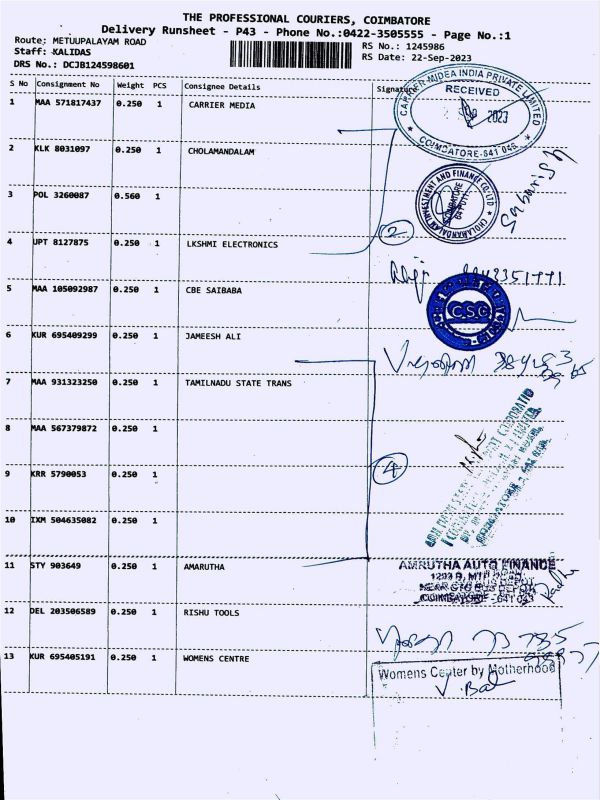 THE PROFESSIONAL COURIERS, COIMBATORE
Delivery Runsheet - P43 - Phone No.:0422-3505555 - Page No.:1
Route: METUUPALAYAM ROAD
RS No.: 1245986
Staff: KALIDAS
RS Date: 22-Sep-2023
DRS No.: DCJB124598601
S No Consignment No Weight PCS Consignee Details Signature
1 MAA 571817437 0.250 1 CARRIER MEDIA
CARRIER MIDEA INDIA PRIVATE LIMITED
RECEIVED
2023
COIMBATORE-641 048
2 KLK 8031097 0.250 1 CHOLAMANDALAM
CHOLAMANDALAM INVESTMENT AND FINANCE CO. LTD
COIMBATORE
3 POL 3260087 0.560 1
2
4 UPT 8127875 0.250 1 LKSHMI ELECTRONICS
5 MAA 105092987 0.250 1 CBE SAIBABA
C.S.C
6 KUR 695409299 0.250 1 JAMEESH ALI
7 MAA 931323250 0.250 1 TAMILNADU STATE TRANS
8 MAA 567379872 0.250 1
9 KRR 5790053 0.250 1
4
10 IXM 504635082 0.250 1
11 STY 903649 0.250 1 AMARUTHA
AMRUTHA AUTO FINANCE
COIMBATORE - 641 043
12 DEL 203506589 0.250 1 RISHU TOOLS
13 KUR 695405191 0.250 1 WOMENS CENTRE
Womens Center by Motherhood